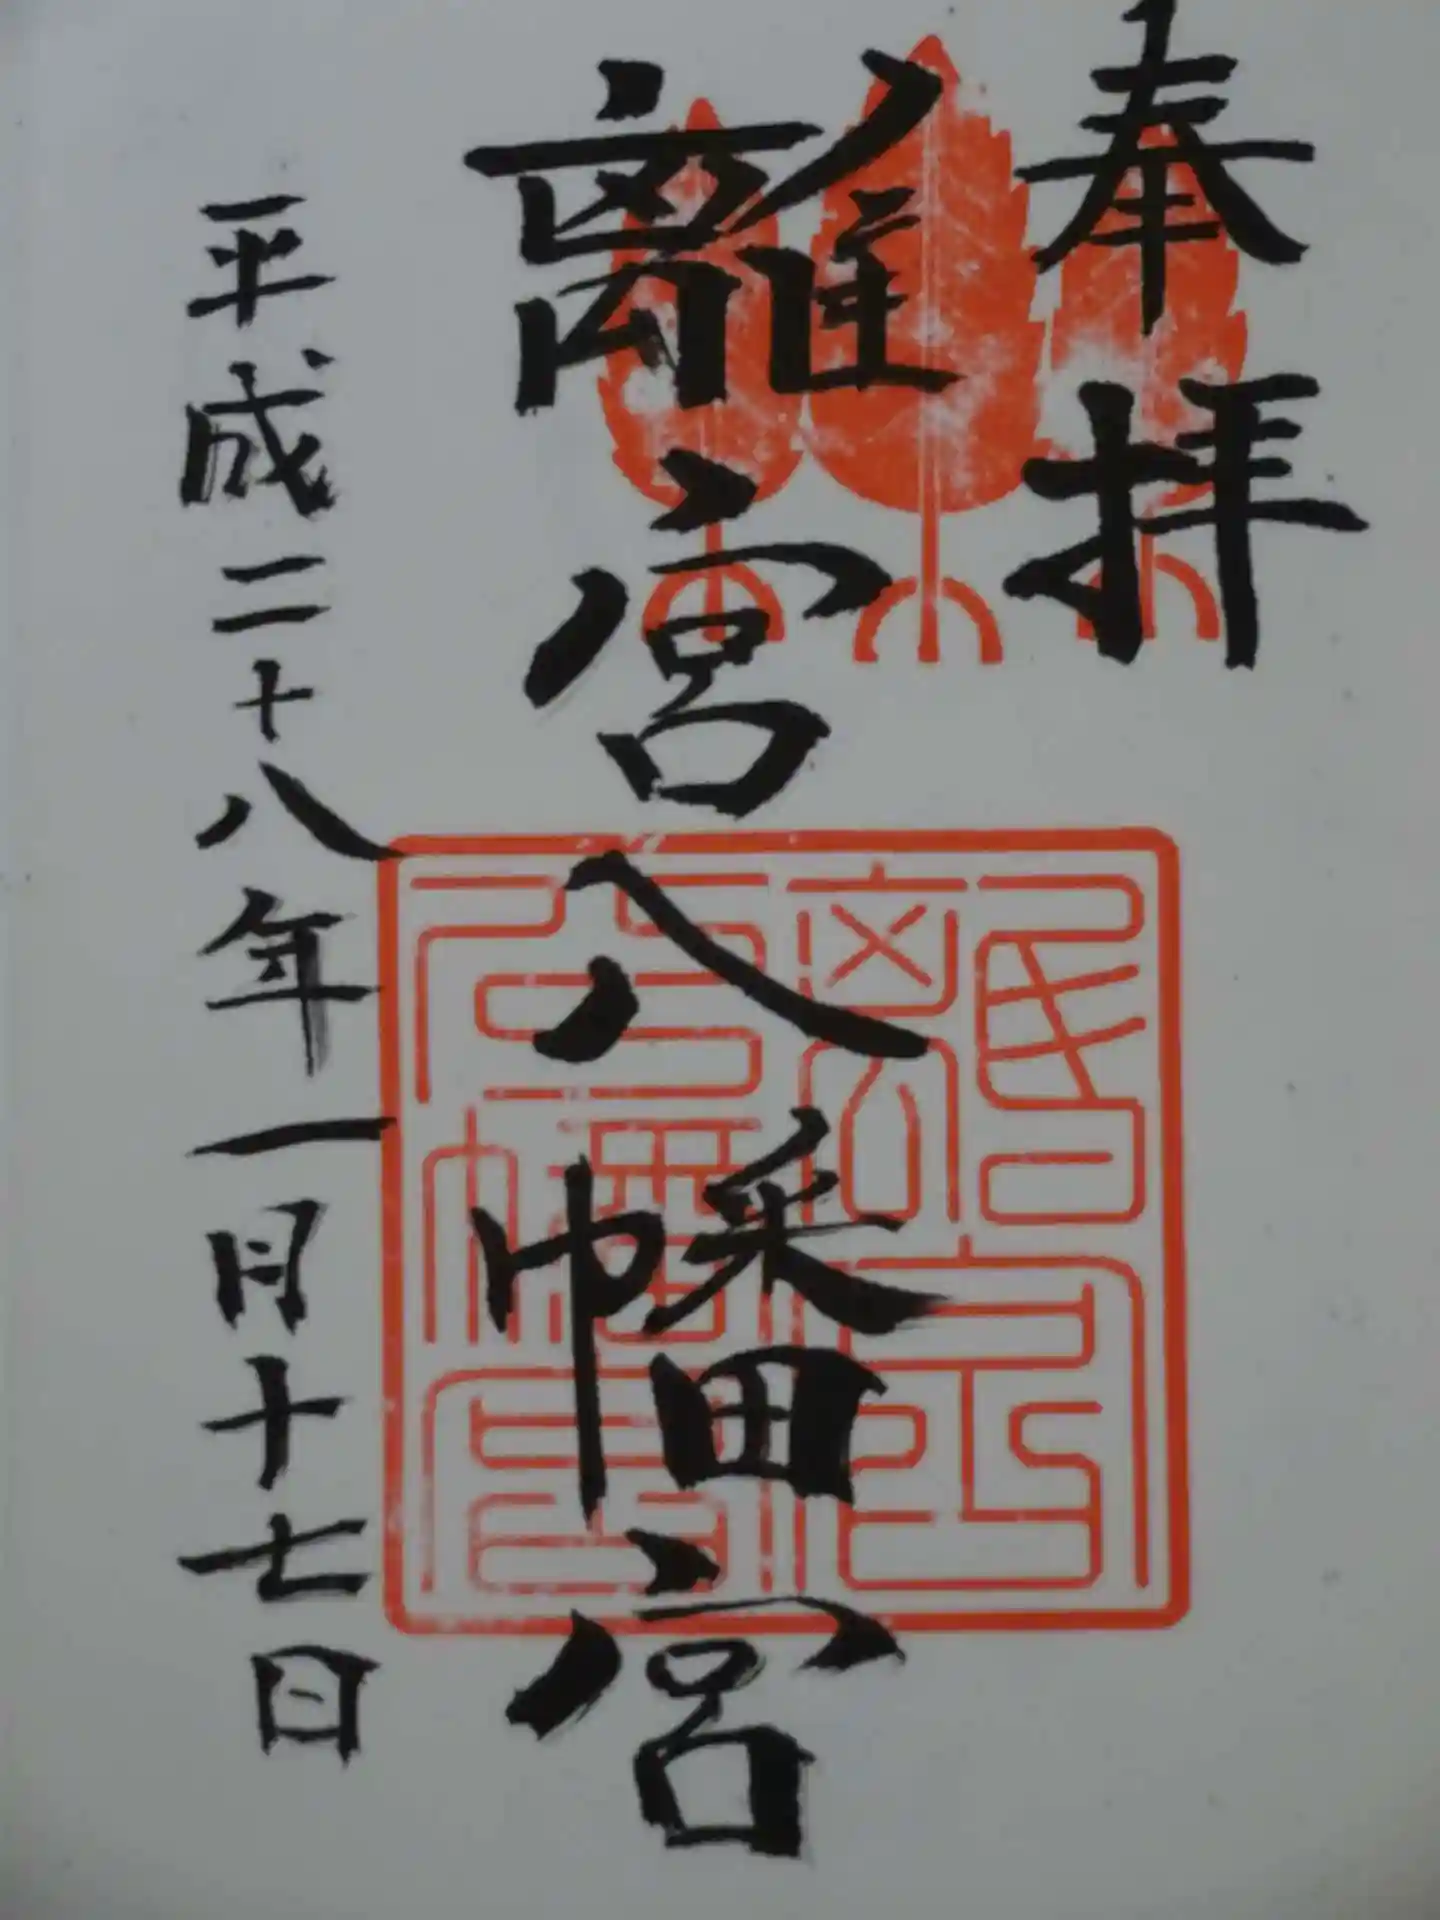 奉拝
離宮八幡宮
平成二十八年一月十七日
離宮
八幡宮